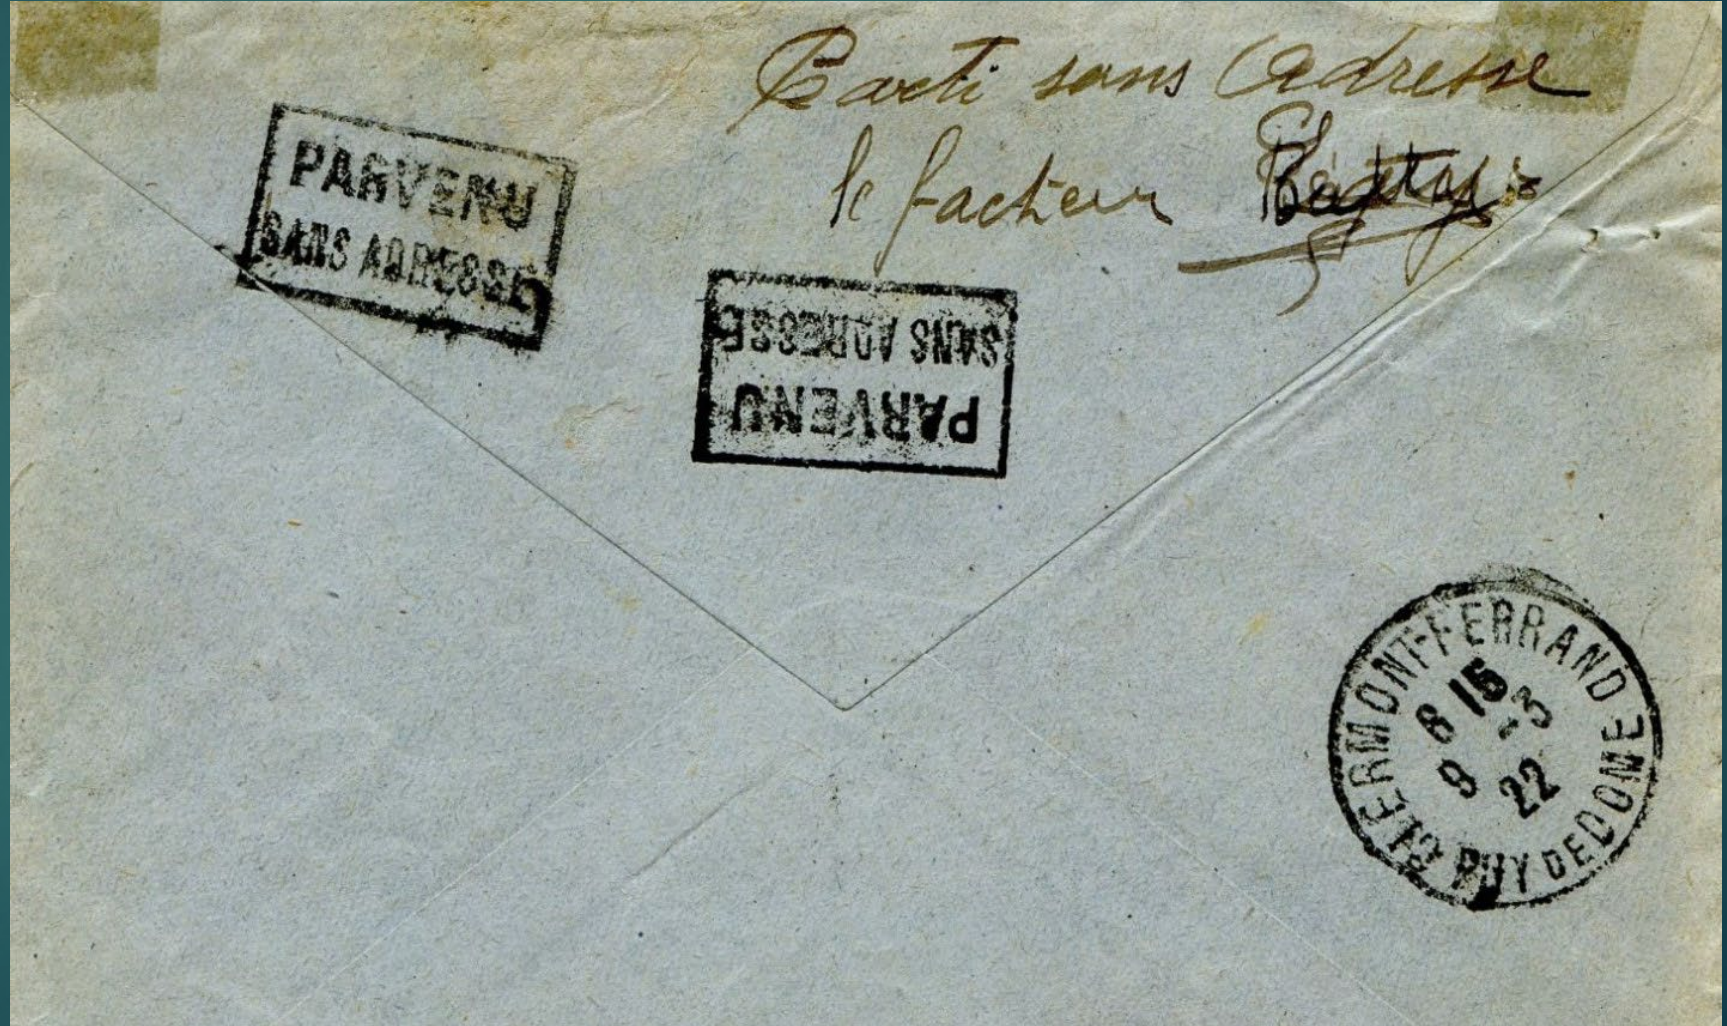 Parti sans Adresse
le facteur
PARVENU
SANS ADRESSE
PARVENU
SANS ADRESSE
CLERMONT-FERRAND
8 15
9 -3
22
PUY DE DOME